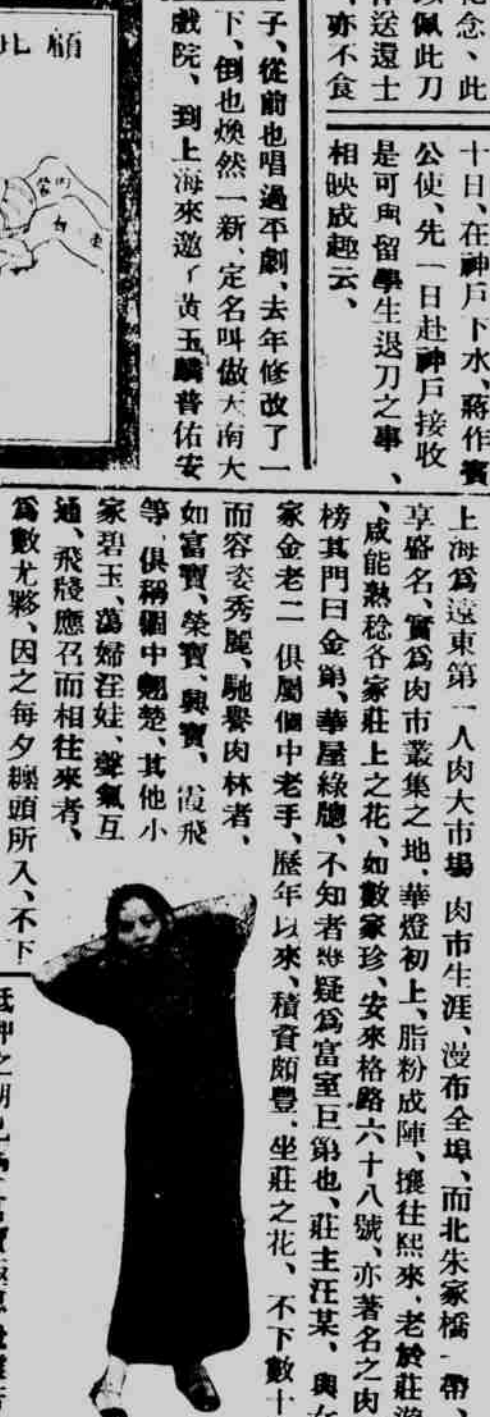 念、此
佩此刀
送還士
亦不食
十日、在神戶下水、蔣作賓
公使、先一日赴神戶接收
是可與留學生退刀之事、
相映成趣云、
子、從前也唱過平劇、去年修改了一
下、倒也煥然一新、定名叫做大南大
戲院、到上海來邀了黃玉麟普佑安
顧
上海爲遠東第一人肉大市場 肉市生涯、漫布全埠、而北朱家橋一帶、
享盛名、實爲肉市叢集之地、華燈初上、脂粉成陣、攘往熙來、老於莊
、咸能熟稔各家莊上之花、如數家珍、安來格路六十八號、亦著名之肉
榜其門曰金第、華屋綠牕、不知者幾疑爲富室巨第也、莊主汪某、與
家金老二 俱屬個中老手、歷年以來、積資頗豐、坐莊之花、不下數十
而容姿秀麗、馳譽肉林者、
如富寶、榮寶、興寶、霞飛
等、俱稱個中翹楚、其他小
家碧玉、蕩婦淫娃、聲氣互
通、飛牋應召而相往來者、
爲數尤夥、因之每夕纏頭所入、不下